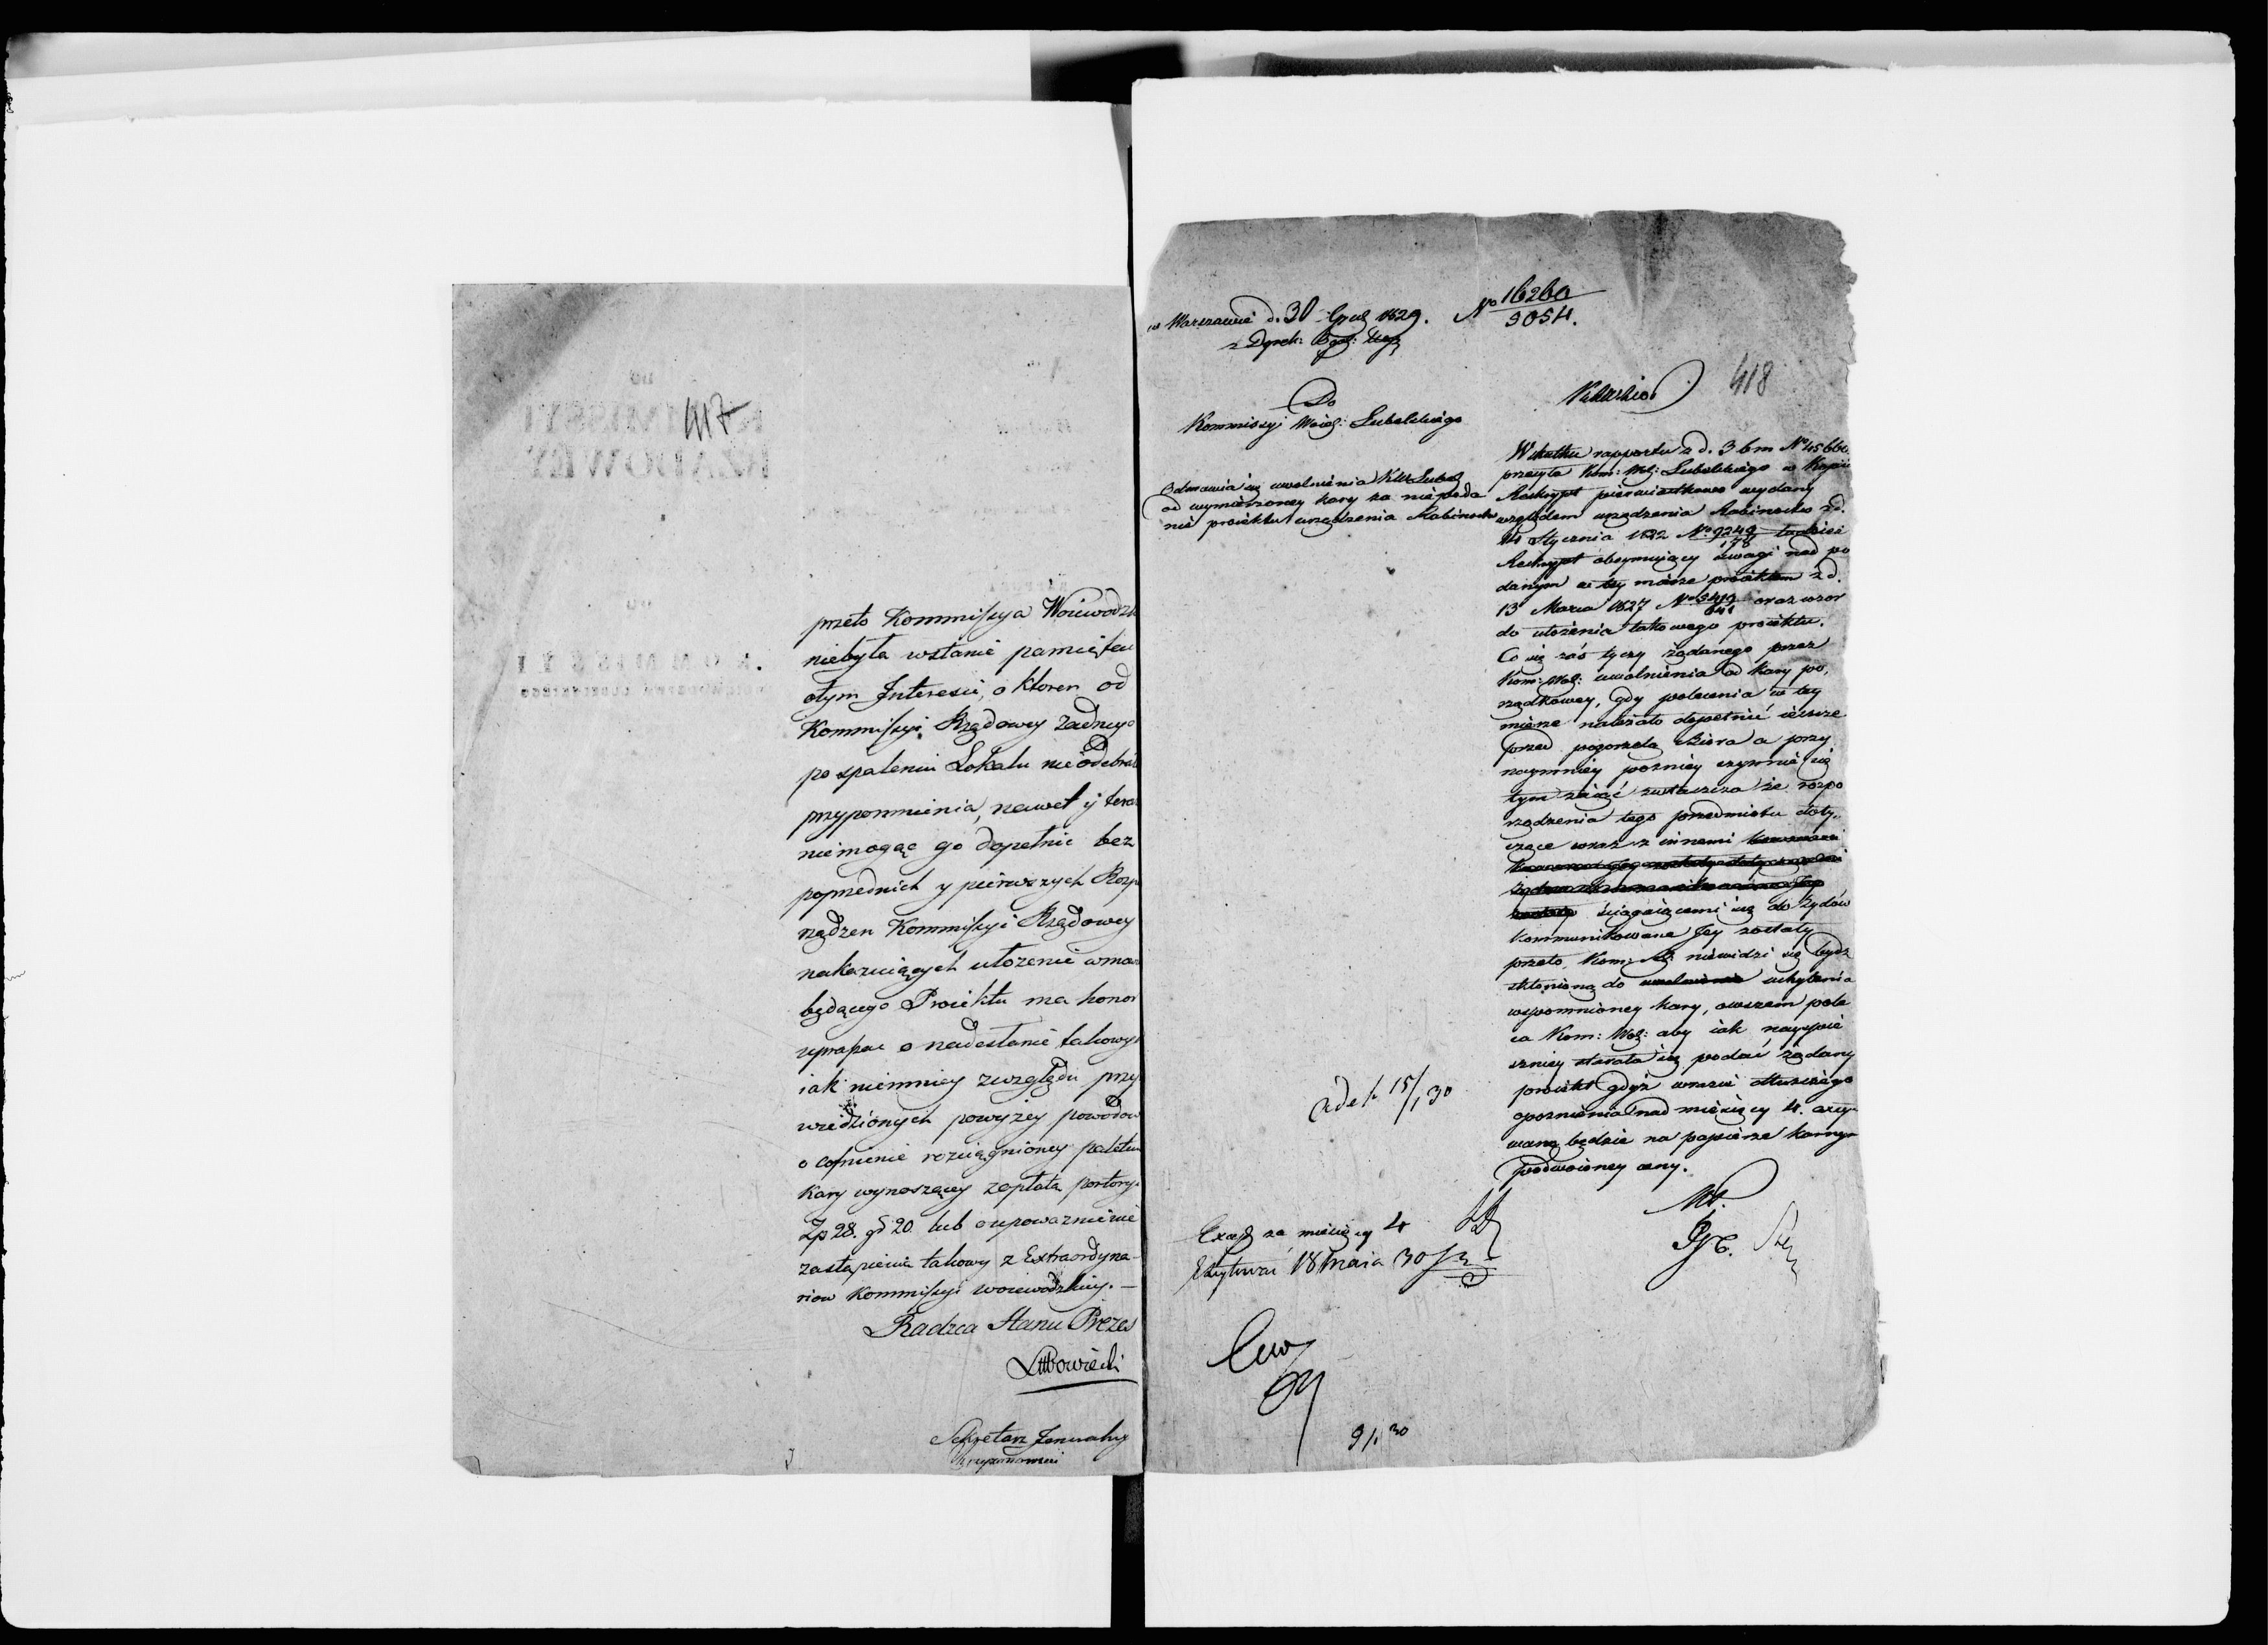 417
przeto Kommissya Woiewodzk
niebyła wstanie pamiętać
otym Interesie, o ktorem od
Kommissyi Rządowey żadnego
po spaleniu Lokalu nieodebrała
przypomnienia, nawet y teraz
niemogąc go dopełnic bez
poprzednich y pierwszych Rozpo
rządzen Kommissyi Rządowey
nakazuiących ułożenie wmow
będącego Proiektu ma honor
upraszać o nadesłanie takowych
iak niemniey zwzględu przy
wiedzionych powyżey powodow
o cofnienie rozciągnioney
kary wynoszącey zapłatą portoryi
Zp 28. gr 20. lub oupoważnienie
zastąpienia takowy z Extraordyna-
riow Kommissyi Woiewodzkiey. —
Radzca Stanu Prezes
Lubowiecki
Sekretarz Jeneralny
w Warszawie d. 30 Grud 1829.
No 16260/3054.
z Dyrek:
418
Do
Kommissyi Woiew: Lubelskiego
Odmawia się uwolnienia KW Lubel
od wymierzoney kary za niepoda
nie proiektu urządzenia Rabinostw
W skutku rapportu z d. 3 bm No 45660
przesyła Kom: Wdz: Lubelskiego w Kopii
Reskrypt pierwiastkowo wydany
względem urządzenia Rabinostw z d.
Stycznia 1822 No 9249 tudzież
Reskrypt obeymuiący uwagi nad po
danym w tey mierze proiektem z d.
13 Marca 1827 No 3419/641 oraz wzor
do ułożenia takowego proiektu.
Co się zaś tyczy żądanego przez
Kom: Wdz: uwolnienia od kary po,
rządkowey, gdy polecenia w tey
mierze należało dopełnić ieszcze
przed pogorzelą Biora a przy
naymniey pozniey
tym zaiąć zwłaszcza że rozpo
rządzenia tego przedmiotu doty,
czące wraz z innemi
ściągaiącemi się do Żydów
kommunikowane Jey zostały
przeto, Kom: Rz: niewidzi się bydź
skłonioną do uwolnienia uchylenia
wspomnioney kary, owszem pole
ca Kom: Wdz: aby iak nayspie
szniey starała się podać żądany
proiekt gdyż wrazie dłuższego
opoznienia nad miesięcy 4.
waną będzie na papierze karnym
podwoioney ceny.
Exasp za miesięcy 4
18 Maia 30
9/1 30